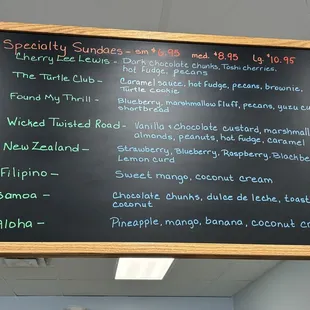 Specialty Sundaes - sm $6.95 med. $8.95 Lg. $10.95
Cherry Lee Lewis - Dark chocolate chunks, Toshi cherries,
hot fudge, pecans
The Turtle Club - Caramel sauce, hot fudge, pecans, brownie,
Turtle cookie
Found My Thrill - Blueberry, marshmallow fluff, pecans, yuzu cu
shortbread
Wicked Twisted Road - Vanilla + chocolate custard, marshmal
almonds, peanuts, hot fudge, caramel
New Zealand - Strawberry, Blueberry, Raspberry, Blackbe
Lemon curd
Filipino - Sweet mango, coconut cream
Samoa - Chocolate chunks, dulce de leche, toast
coconut
Aloha - Pineapple, mango, banana, coconut c